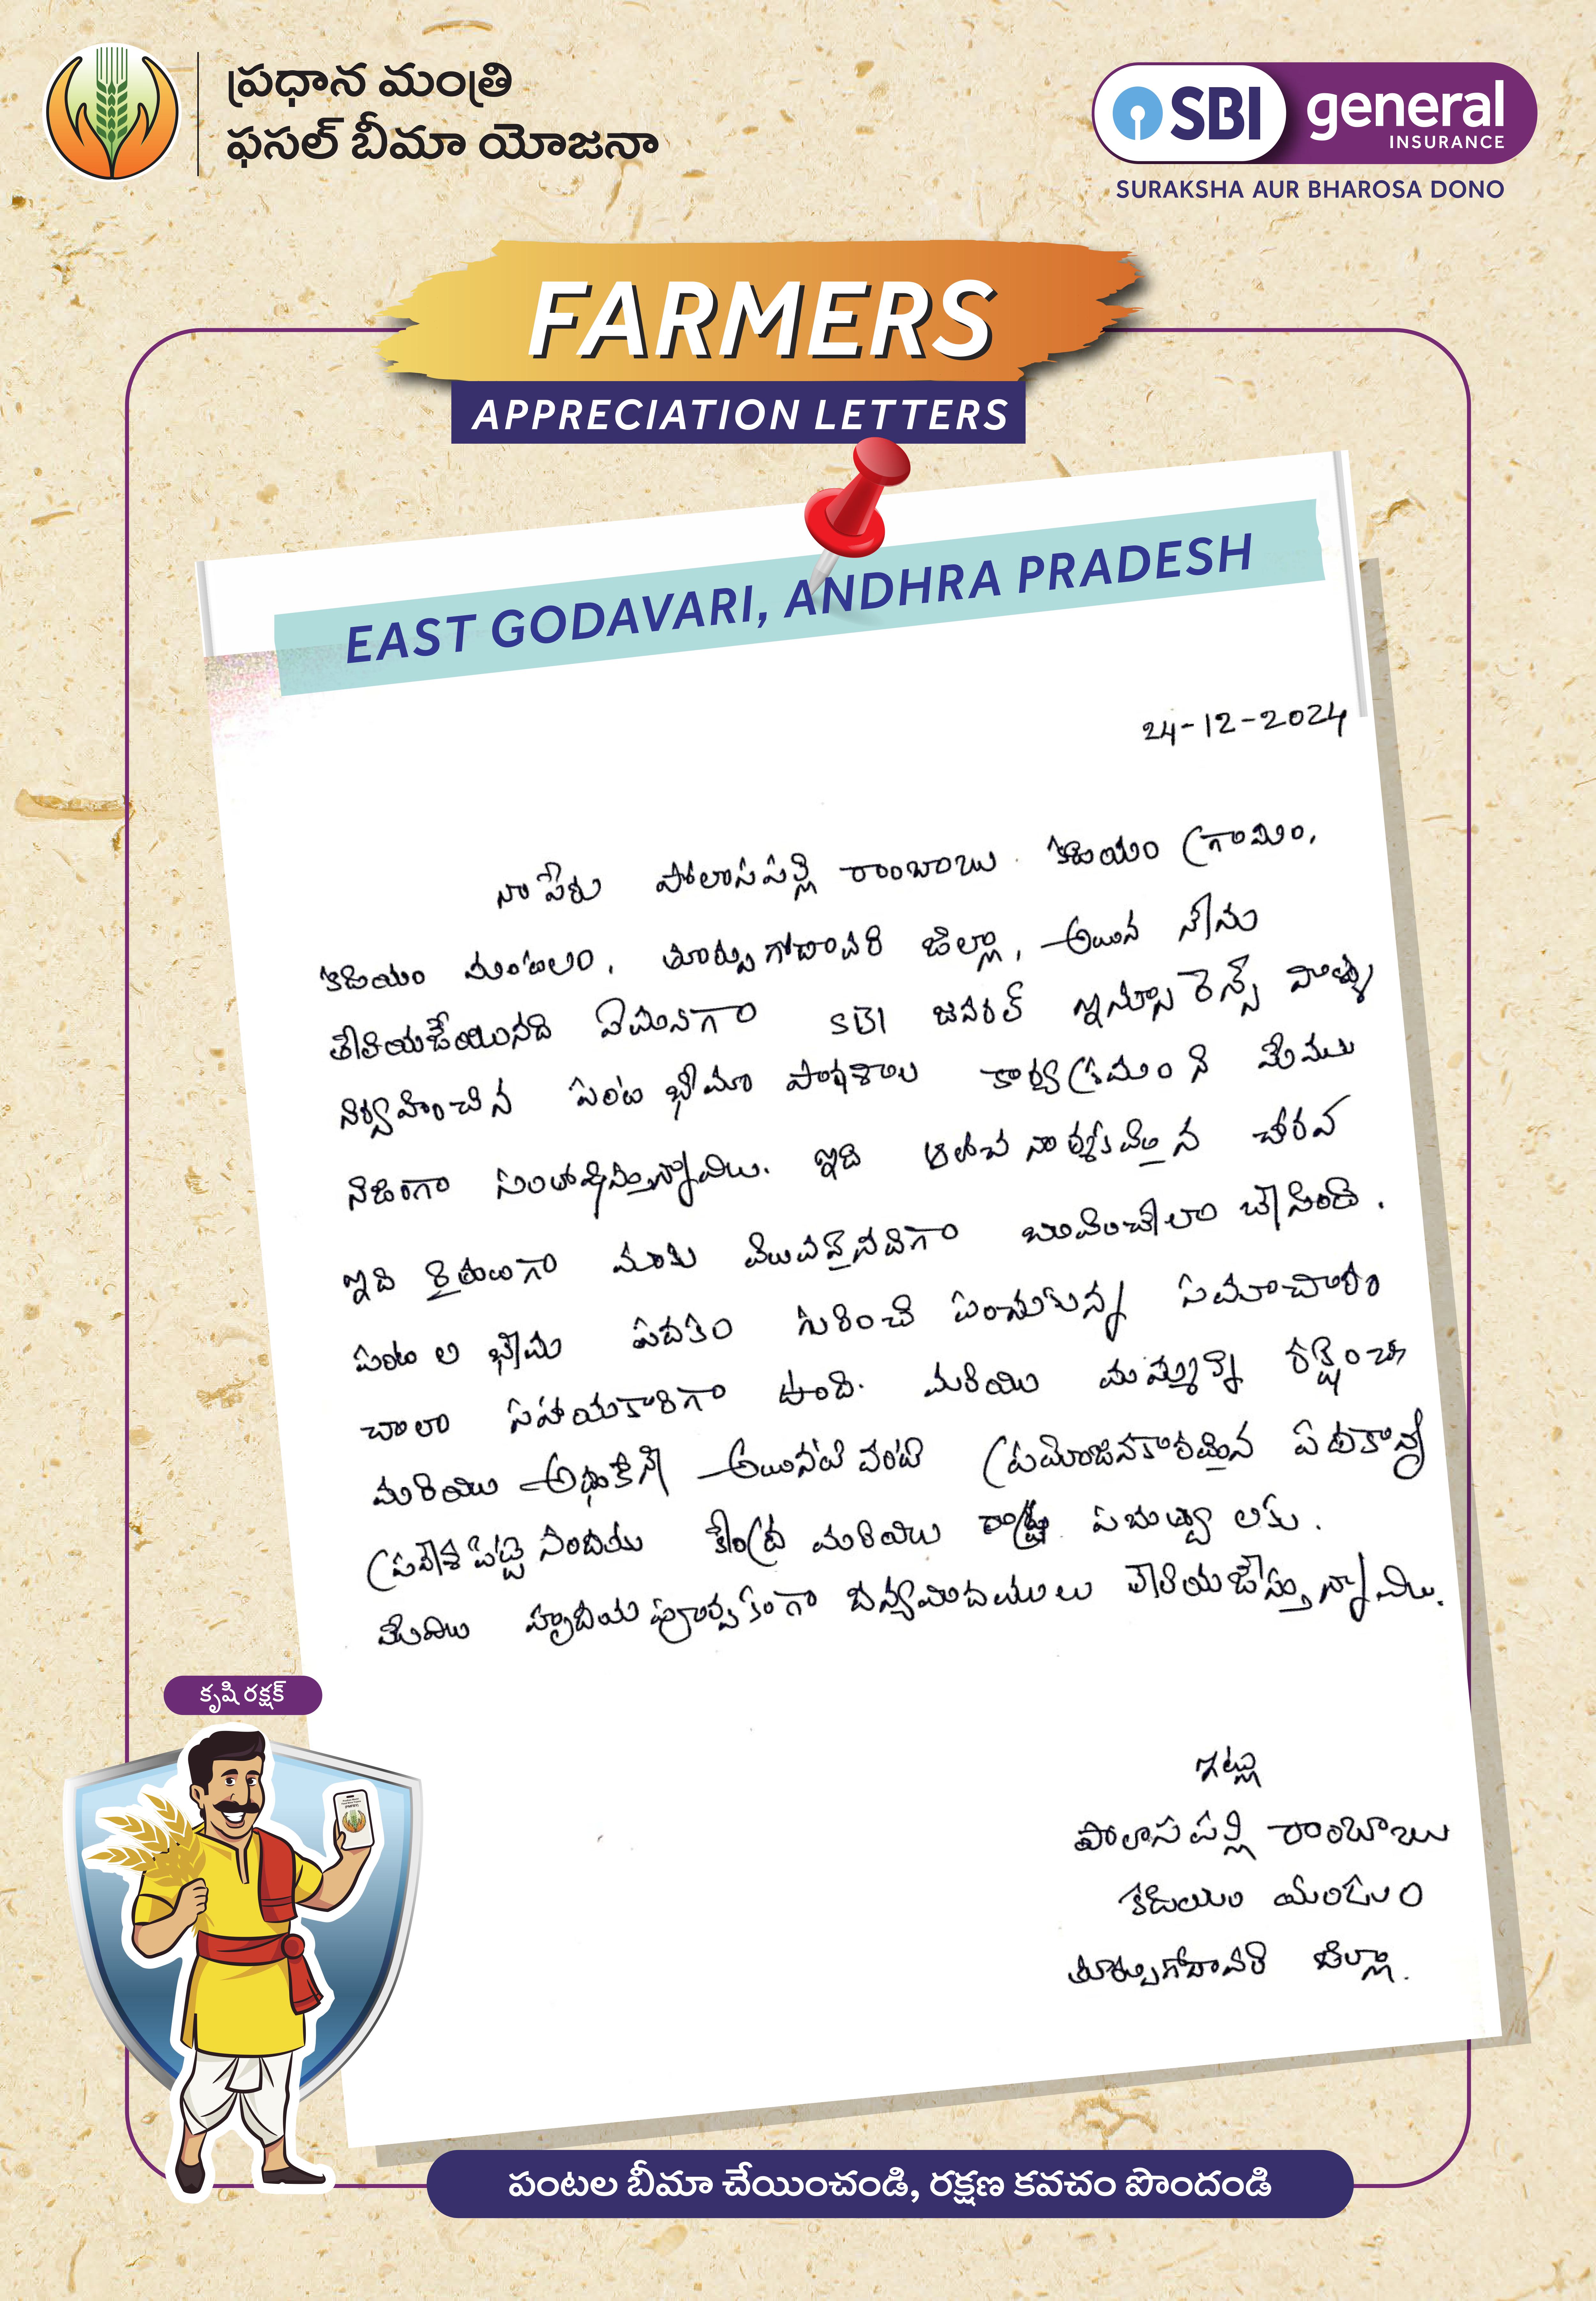 ప్రధాన మంత్రి
ఫసల్ బీమా యోజనా
SBI general
INSURANCE
SURAKSHA AUR BHAROSA DONO
FARMERS
APPRECIATION LETTERS
EAST GODAVARI, ANDHRA PRADESH
24-12-2024
నా పేరు పోలాసపల్లి రాంబాబు కడియం గ్రామం,
కడియం మండలం, తూర్పుగోదావరి జిల్లా, అయిన నేను
తెలియజేయునది ఏమనగా SBI జనరల్ ఇన్సూరెన్స్ వాళ్ళు
నిర్వహించిన పంట భీమా పాఠశాల కార్యక్రమం ని మేము
నిజంగా సంతోషిస్తున్నాము. ఇది ఆలోచనాత్మకమైన చొరవ
ఇది రైతులుగా మాకు విలువైనదిగా
పంటల భీమ పథకం గురించి పంచుకున్న సమాచారం
చాలా సహాయకారిగా ఉంది. మరియు మమ్మల్ని రక్షించే
మరియు అయినటువంటి ప్రయోజనకారమైన పథకాన్ని
ప్రవేశపెట్టినందుకు కేంద్ర మరియు రాష్ట్ర పభుత్వాలకు.
మేము హృదయపూర్వకంగా ధన్యవాదములు తెలియజేస్తున్నాము.
ఇట్లు
పోలాసపల్లి రాంబాబు
కడియం మండలం
తూర్పుగోదావరి జిల్లా.
కృషి రక్షక్
పంటల బీమా చేయించండి, రక్షణ కవచం పొందండి